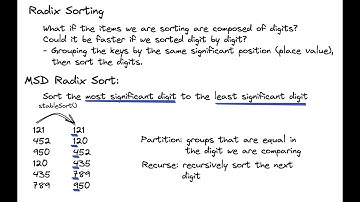 Radix Sorting
What if the items we are sorting are composed of digits?
Could it be faster if we sorted digit by digit?
- Grouping the keys by the same significant position (place value),
then sort the digits.
MSD Radix Sort:
Sort the most significant digit to the least significant digit
stableSort()
121 121
452 120
950 452
120 435
435 789
789 950
Partition: groups that are equal in
the digit we are comparing
Recurse: recursively sort the next
digit